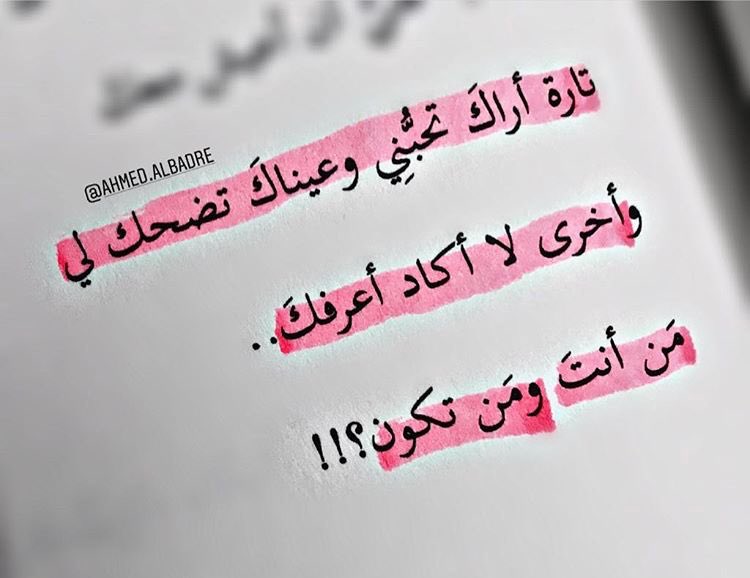 تارة أراكَ تحبُّنِي وعيناكَ تضحك لي
@AHMED.ALBADRE
وأخرى لا أكاد أعرفكَ..
مَن أنتَ ومَن تكون؟!!!